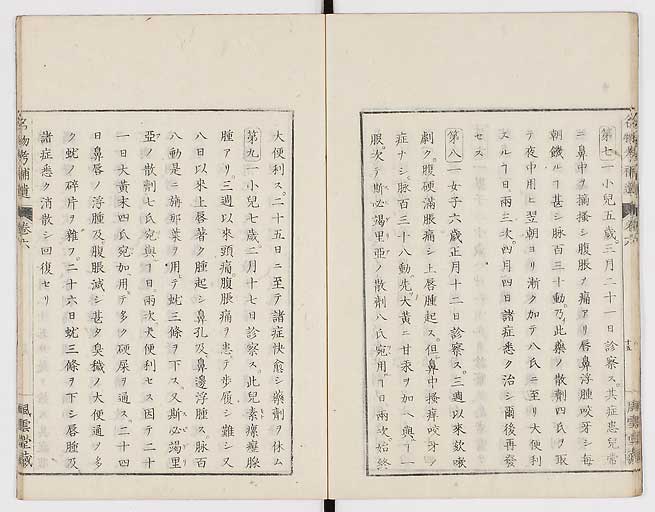 第七 一小兒五歲三月二十一日診察ス其症患兒常
ニ鼻中ヲ摘搔シ腹脹ヲ痛アリ唇鼻浮腫咬牙シ每
朝饑ルヿ甚シ脉百三十動乃此藥ノ散劑四氏ヲ取
テ夜中用ヒ翌朝ヨリ漸ク加テ八氏ニ至リ大便利
スルヿ日兩三次四月四日諸症悉ク治シ爾後再發
セス
第八 一女子六歲正月十二日診察ス三週以來欬嗽
劇ク腹硬滿脹痛シ上唇腫起ス但鼻中搔痒咬牙ノ
症ナシ脉百三十八動先大黃ニ甘汞ヲ加ヘ與ヿ一
服次テ斯必竭里亞ノ散劑八氏宛用ヿ日兩次始終
名物考補遺 卷六
風雲堂藏
大便利ス二十五日ニ至テ諸症快愈シ藥劑ヲ休ム
第九 一小兒七歲二月十七日診察ス此兒素瘰癧腺
腫アリ三週以來頭痛腹脹痛ヲ患テ步履シ難シ又
八日以來上唇著ク腫起シ鼻孔及鼻邊浮腫ス脉百
八動是ニ旃那葉ヲ用テ蚘三條ヲ下ス又斯必竭里
亞ノ散劑七氏宛與ヿ日兩次大便利セス因テ二十
一日大黃末四氏宛加用テ多ク硬屎ヲ通ス二十四
日鼻唇ノ浮腫及腹脹減シ甚タ臭穢ノ大便通ヿ多
ク蚘ノ碎片ヲ雜フ二十六日蚘三條ヲ下シ唇腫及
諸症悉ク消散シ回復セリ
名物考補遺 卷六
風雲堂藏